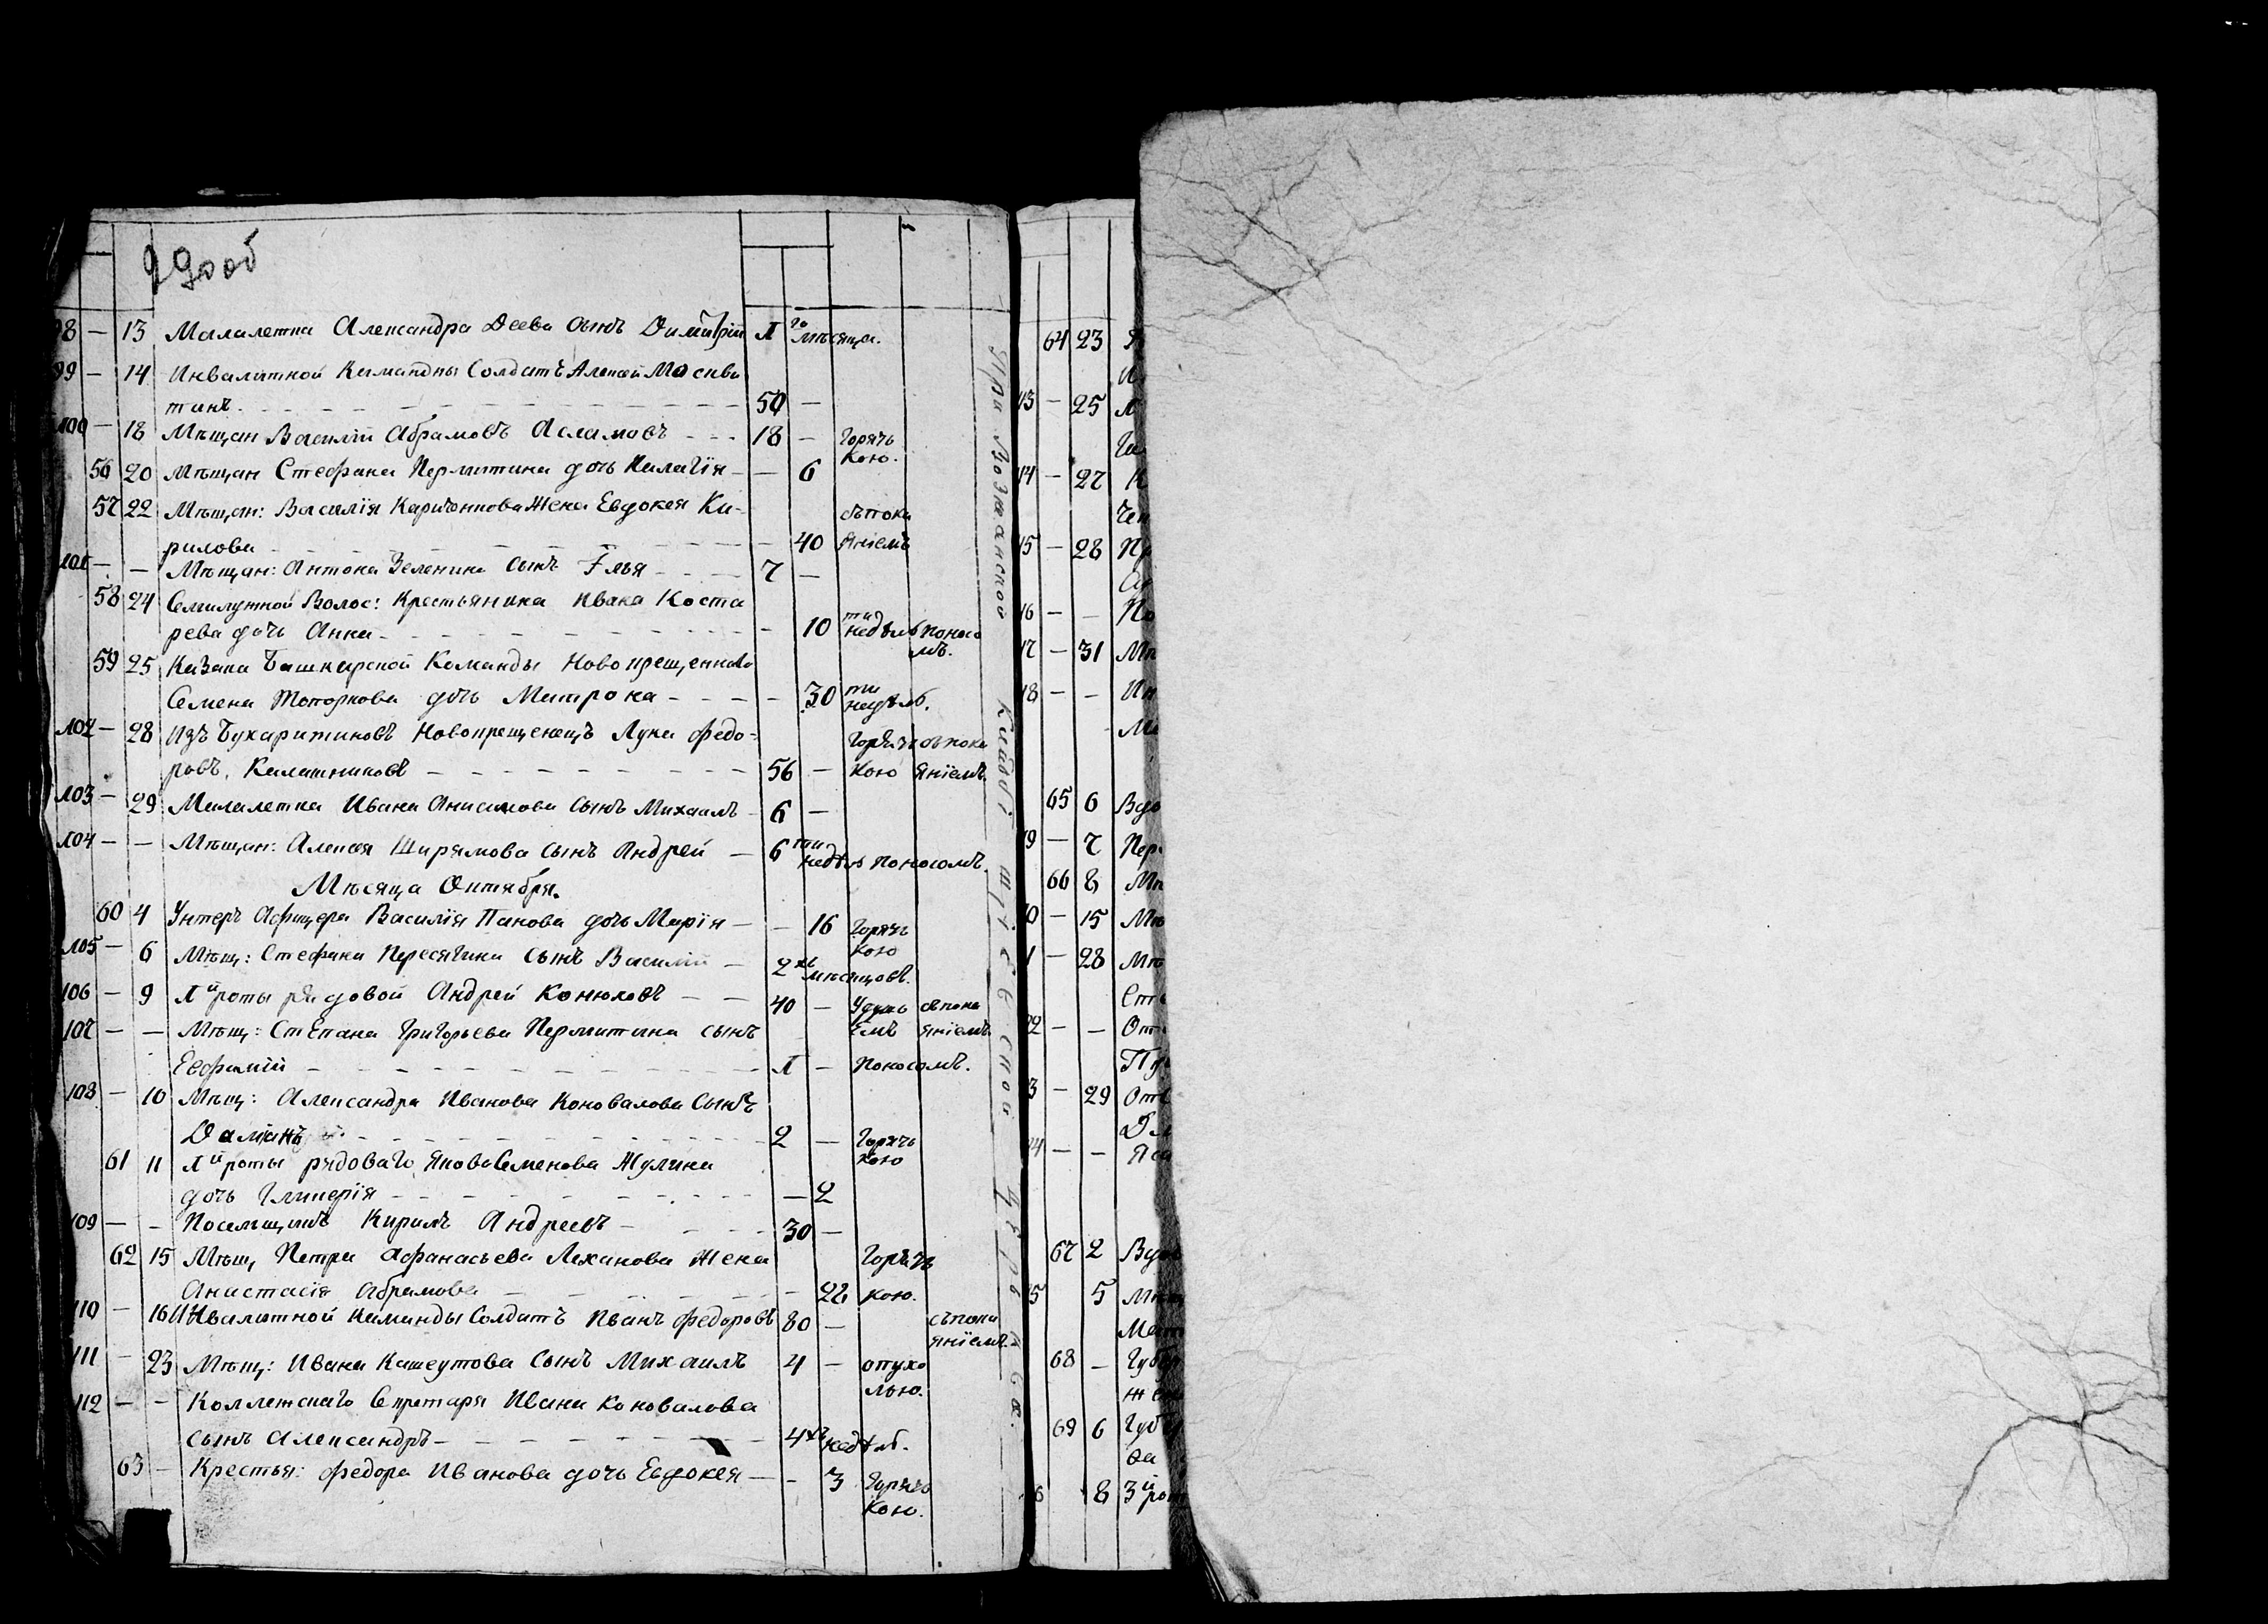 29 об
98 — 13 Малалетка Александра Деева сынъ Димитрій 1 го мѣсяца.
99 — 14 Инвалитной Каманды Солдатъ Алексей Москви
тинъ. 50 —
100 — 18 Мѣщан Василій Абрамовъ Асламовъ 18 — Горячь
кою.
56 20 Мѣщан Стефана Пермитина дочь Пилагія — 6
57 22 Мѣщан: Василія Жена Евдокея Ки-
съпока
рилова — 40 яніемъ
101 — — Мѣщан: Антона Зеленина сынъ Илья 7 —
58 24 Семилужной Волос: Крестьянина Ивана Коста
рева дочь Анна — 10 ти недѣль поносо
мъ.
59 25 Казака Башкирской Команды Новокрещеннаго
Семена Топоркова дочь Матрона — 30 ти недѣль.
102 — 28 Изъ Бухаритиновъ Новокрещенецъ Лука Федо-
Горячь съпока
ровъ, Калашниковъ 56 — кою яніемъ.
103 — 29 Малалетка Ивана Анисимова Сынъ Михаилъ 6 —
104 — — Мѣщан: Алексея Ширямова сынъ Андрей — 6 ти недѣль поносомъ.
Мѣсяца Октября.
60 4 Унтеръ Афицера Василія Панова дочь Марія — 16 Горячь
кою
105 — 6 Мѣщ: Стефана Пересягина сынъ Василій — 2 хъ мѣсяцовъ.
106 — 9 1й роты рядовой Андрей Конюховъ 40 — Удушь съпока
емъ яніемъ
107 — — Мѣщ: Степана Григорьева Пермитина сынъ
Евфимій 1 — поносомъ.
108 — 10 Мѣщ: Александра Иванова Коновалова Сынъ
Даміанъ 2 — Горячь
кою
61 11 1й роты рядоваго Якова Семенова Жулина
дочь Гликерія — 2
109 — — Поселщикъ Кирилъ Андреевъ 30 —
62 15 Мѣщ, Петра Афанасьева Лаханова Жена Горячь
Анастасія Абрамова — 22 кою.
110 — 16 Инвалитной Каманды Солдатъ Иванъ Федоровъ 80 — съпока
яніемъ.
111 — 23 Мѣщ: Ивана Кашеутова Сынъ Михаилъ 4 — опухо
лью.
112 — — Коллетскаго Секретаря Ивана Коновалова
сынъ Александръ 4 хъ недѣль.
63 — Крестья: Федора Иванова дочь Евдокея — 3 Горячь
кою.
При
64 23
13 — 25
14 — 27
15 — 28
16 — —
17 — 31
18 — —
65 6 Вдо
19 — 7
66 8
20 — 15
21 — 28
22 — —
23 — 29
24 — —
67 2 Вдо
25 5
68 —
69 6
26 8 3й рот